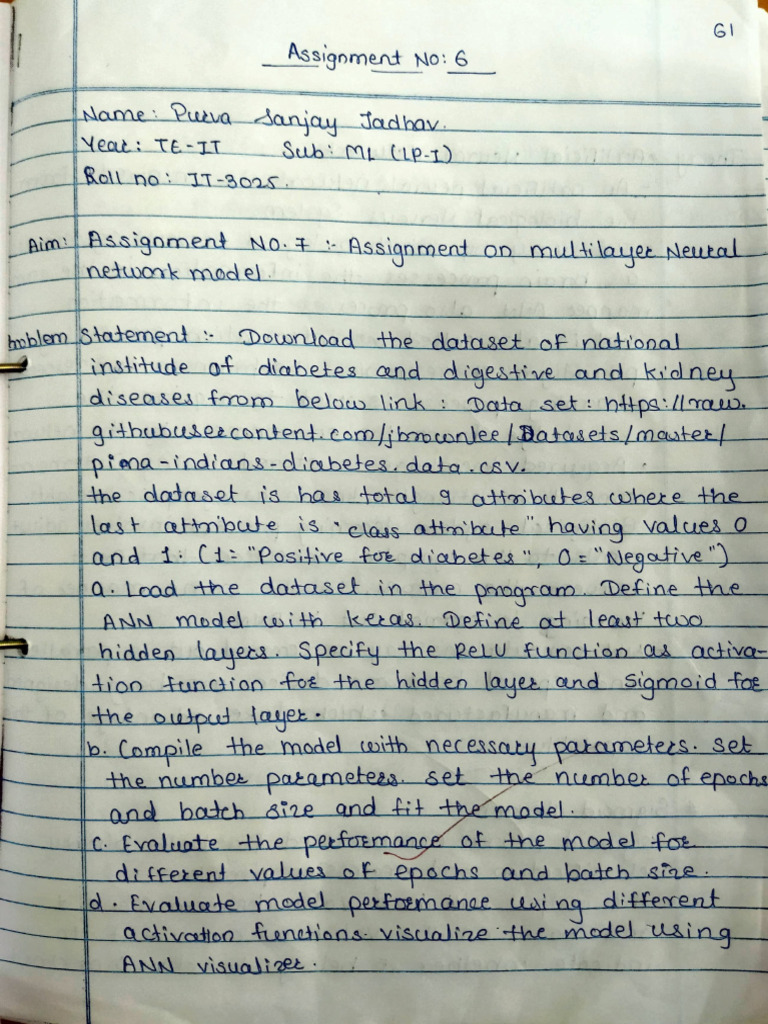 61
Assignment No: 6
Name: Purva Sanjay Jadhav.
Year: TE-IT Sub: ML (LP-I)
Roll no: IT-3025.
Aim: Assignment No. 7 :- Assignment on multilayer Neural
network model.
Problem Statement :- Download the dataset of national
institude of diabetes and digestive and kidney
diseases from below link : Data set : https://raw.
githubusercontent.com/jbrownlee/Datasets/master/
pima-indians-diabetes.data.csv.
the dataset is has total 9 attributes where the
last attribute is "class attribute" having values 0
and 1. (1= "Positive for diabetes", 0 = "Negative")
a. Load the dataset in the program. Define the
ANN model with keras. Define at least two
hidden layers. Specify the ReLU function as activa-
tion function for the hidden layer and sigmoid for
the output layer.
b. Compile the model with necessary parameters. set
the number parameters. set the number of epochs
and batch size and fit the model.
c. Evaluate the performance of the model for
different values of epochs and batch size.
d. Evaluate model performance using different
activation functions. visualize the model using
ANN visualizer.